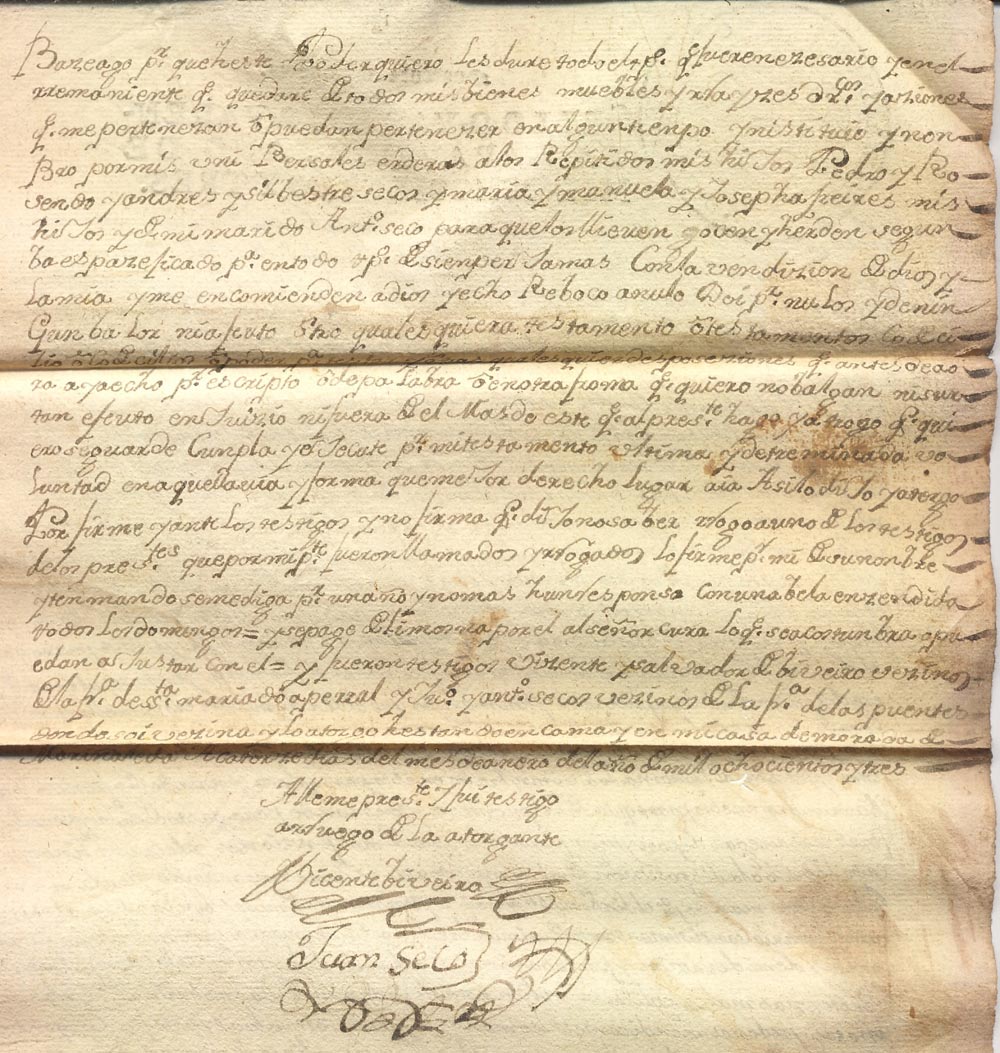 Bazeago p.r queheste Poder quiero lesdure todo el tp.o q.e fuerenezesario yenel
rremaniente q.e quedare de todos misbienes muebles yrrayzes dr.os yaziones
q.e mepertenezan ô puedan pertenezer en alguntienpo ynistituio ynon
Bro pormis uni Bersales erderas alos Repitidos mis hiJos Pedro y Ro
sendo yandres ysilbestre secos ymaria ymanuela y Josepha freires mis
hiJos yde mi marido Ant.o seco paraquelollieven gocen yherden segun
ba espazeficado p.r entodo tp.o desienper Jamas Conla vendizion de dios y
Lamia yme encomienden adios yecho Reboco anulo Doi p.r nulos ydenin
Gunbalor niafeuto ôtro qualesquiera testamento ôtestamentos Codeci
lio quales quier desposeziones q.e antes deao
ra ayaecho p.r escripto ôdepalabra ôenotra forma q.e quiero nobalgan nisur
tan efeuto en Juizio nifuera del Mas de este q.e alpres.te hago yotrogo q.e qui
ero seguarde Cunpla yeJecute p.r mitestamento ultima ydetreminada vo
luntad enaquellavia yforma queme Jor derecho lugar aia Asilo diJo yatorgo
Por firme yante los testigos yno firma q.e diJo nosaber rrogoauno de los testigos
delos pres.tes que pormip.te fueron llamados yrrogados lofirme p.r mi desunonbre
yten mando semediga p.r unaño ynomas hunrresponso Conunabela enzendida
todos Losdomingos= ysepage delimosna porel alseñor cura loq.e seacostunbra opu
edan aJustar Con el= y fueron testigos Vizente ysalvador de biveiro vezinos
dela fr.a de s.ta maria do aperral y Ju.o yant.o secos vezinos de la fr.a delas puentes
donde soi vezina yloatorgo hestando en cama yen mi casa demorada de
dias del mes deanero del año de mill ochocientos ytres
Alleme pres.te Ifui testigo
arruego de la atorgante
Vicente biveiro
Juan Seco